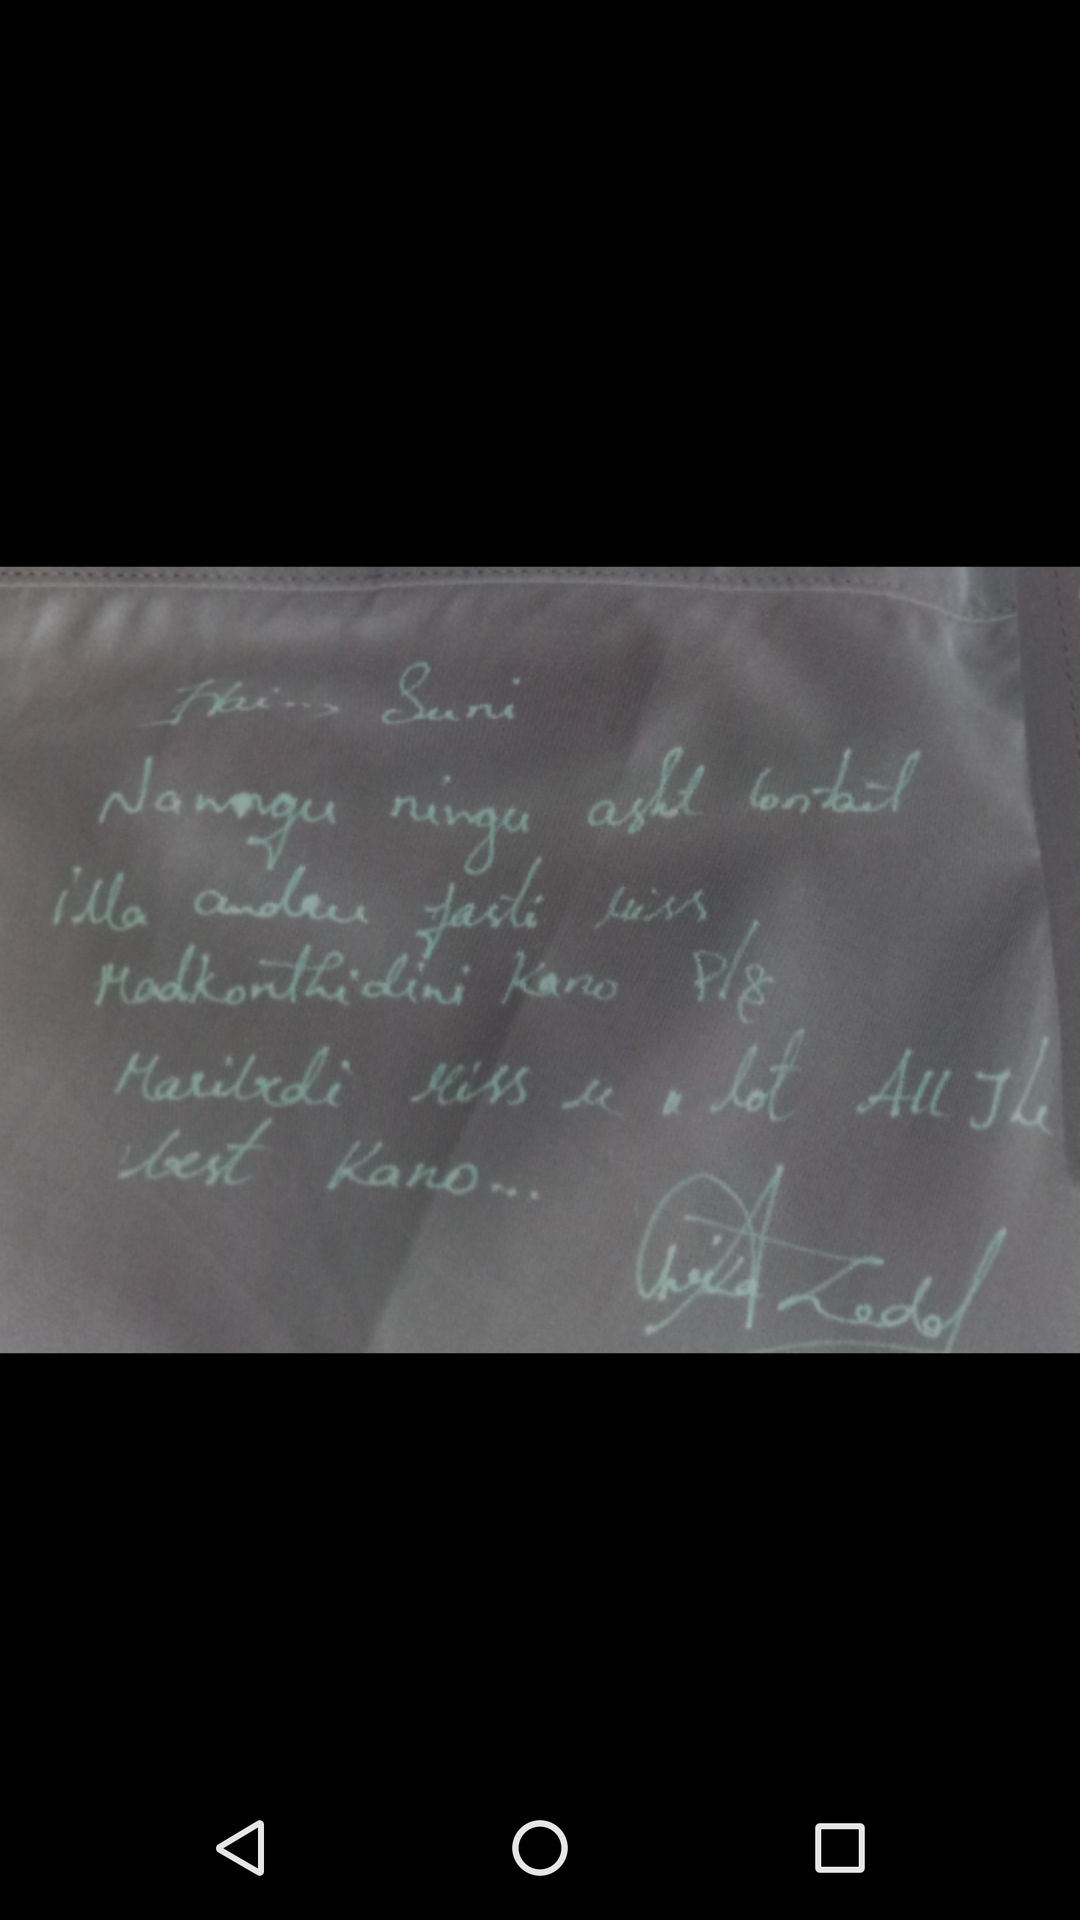 Hai... Suni
Nanngu ningu asht contact
illa andru jasti miss
Madkonthidini Kano Plz
Maribedi miss u a lot All The
best Kano...